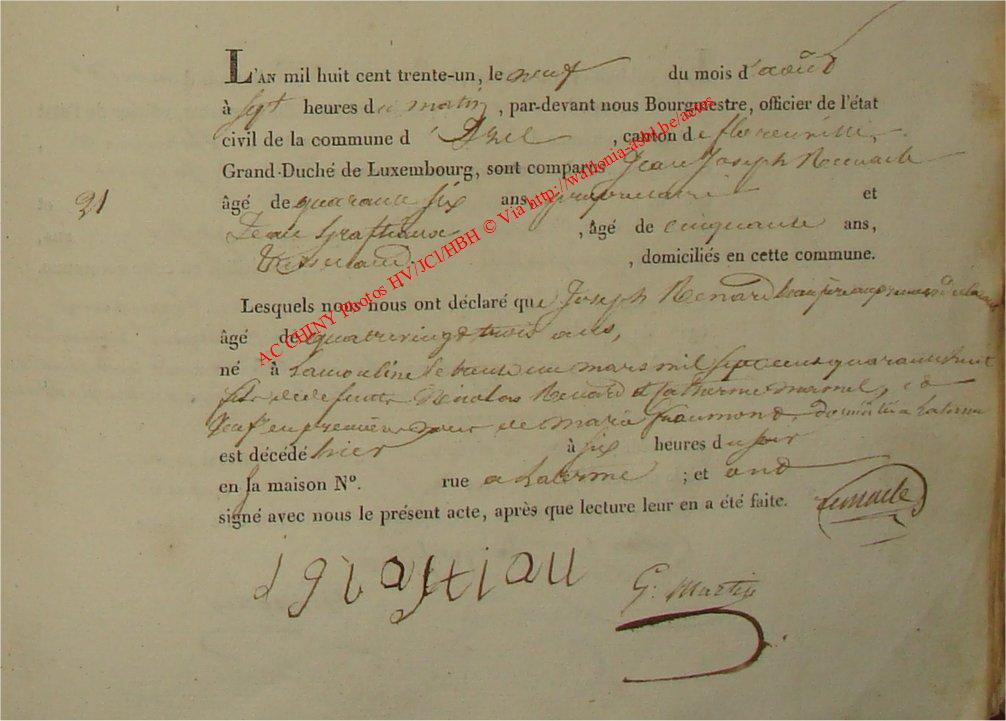 L'AN mil huit cent trente-un, le neuf du mois d'août
à sept heures du matin, par-devant nous Bourgmestre, officier de l'état
civil de la commune d'Izel, canton de florenville,
Grand-Duché de Luxembourg, sont comparus Jean Joseph
21
âgé de quarante six ans, propriétaire et
Jean, âgé de cinquante ans,
, domiciliés en cette commune.
Lesquels nous ont déclaré que Joseph Renard beaupère au premier
âgé de quatrevingt trois ans,
né à Lamouline le trente un mars mil sept cent quarante huit
fils de defunts Nicolas Renard et Catherine, et
veuf en premières de marie, domicilié a
est décédé hier à six heures du soir
en la maison N°. rue a ; et ont
signé avec nous le présent acte, après que lecture leur en a été faite.
G: Martin
AC CHINY Photos HV/JCl/HBH © Via http://wallonia-asbl.be/actes